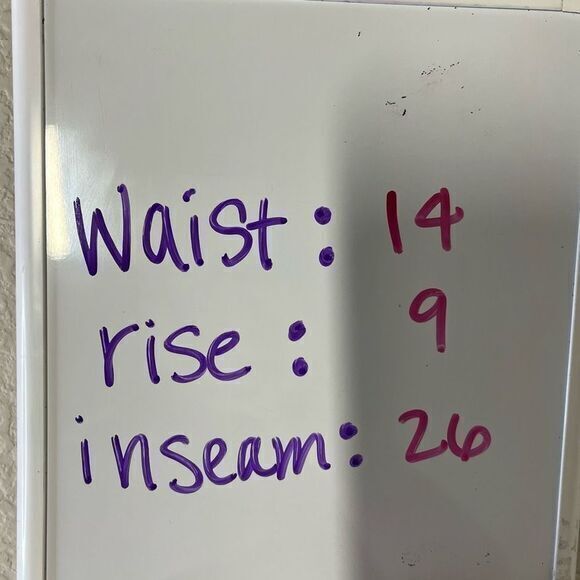 Waist: 14
rise: 9
inseam: 26